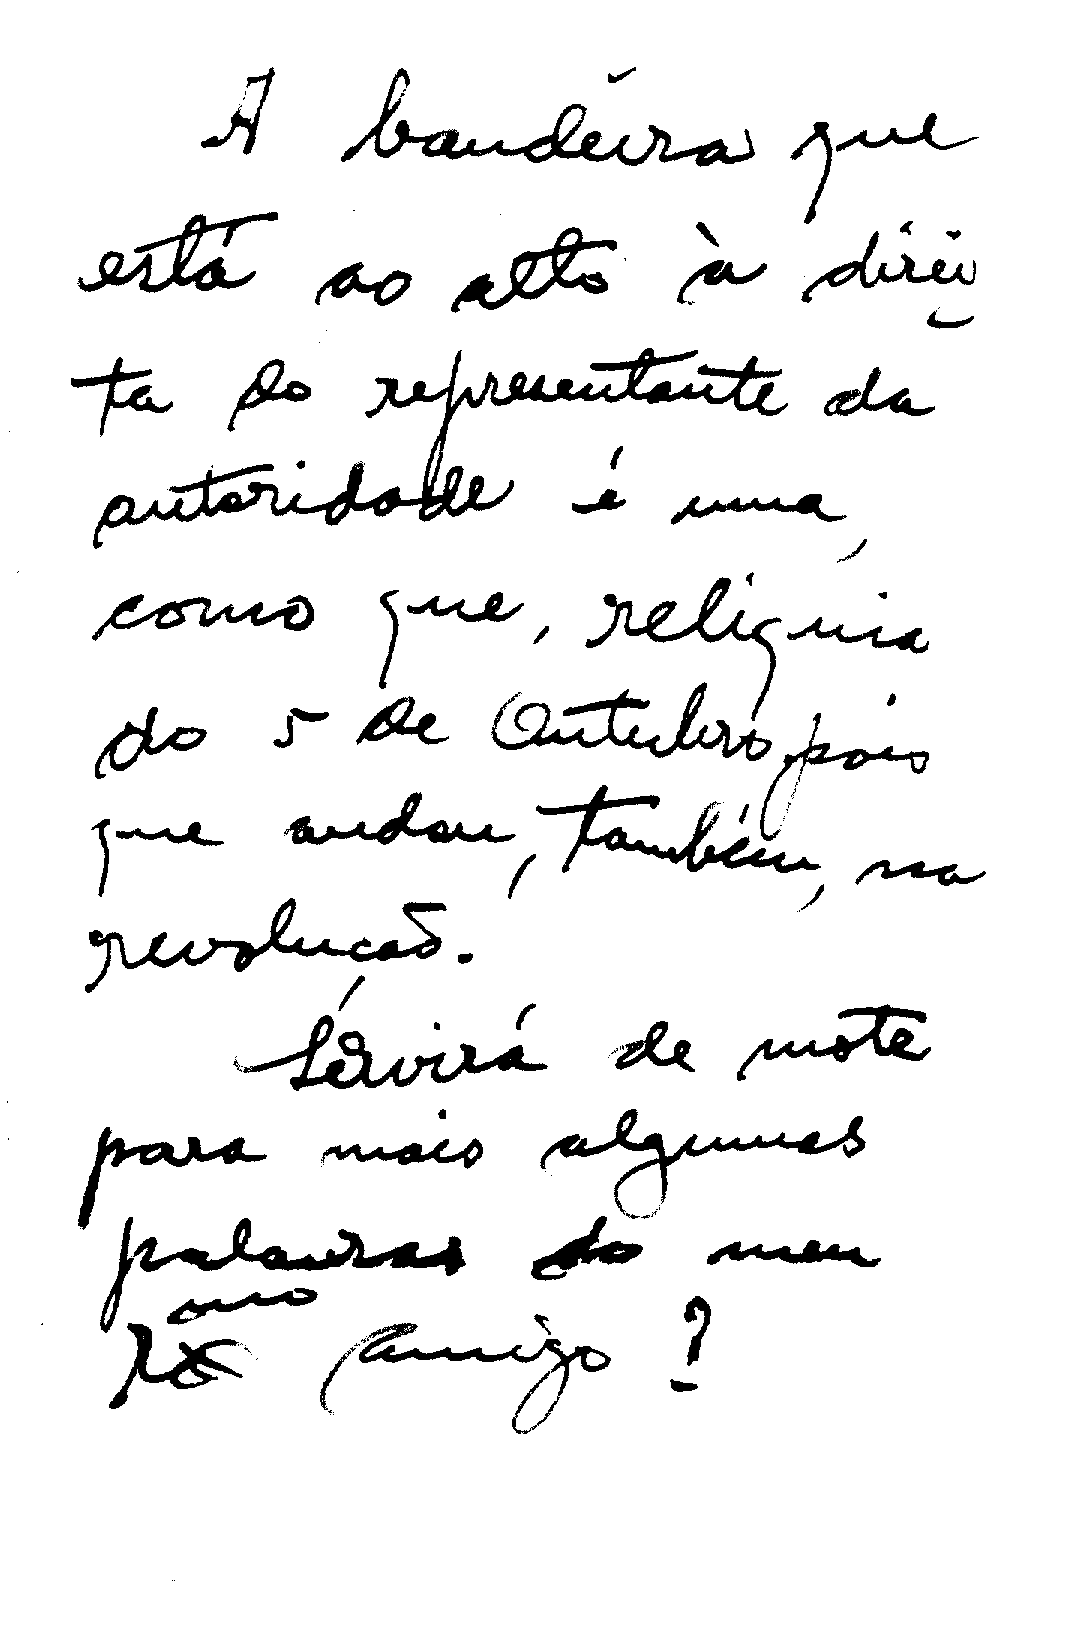 A bandeira que
está ao alto à direi
ta do representante da
autoridade é uma,
como que, reliquia
do 5 de Outubro, pois
que andou, também, na
revolução.
Servirá de mote
para mais algumas
palavras do meu
Rmo amigo?